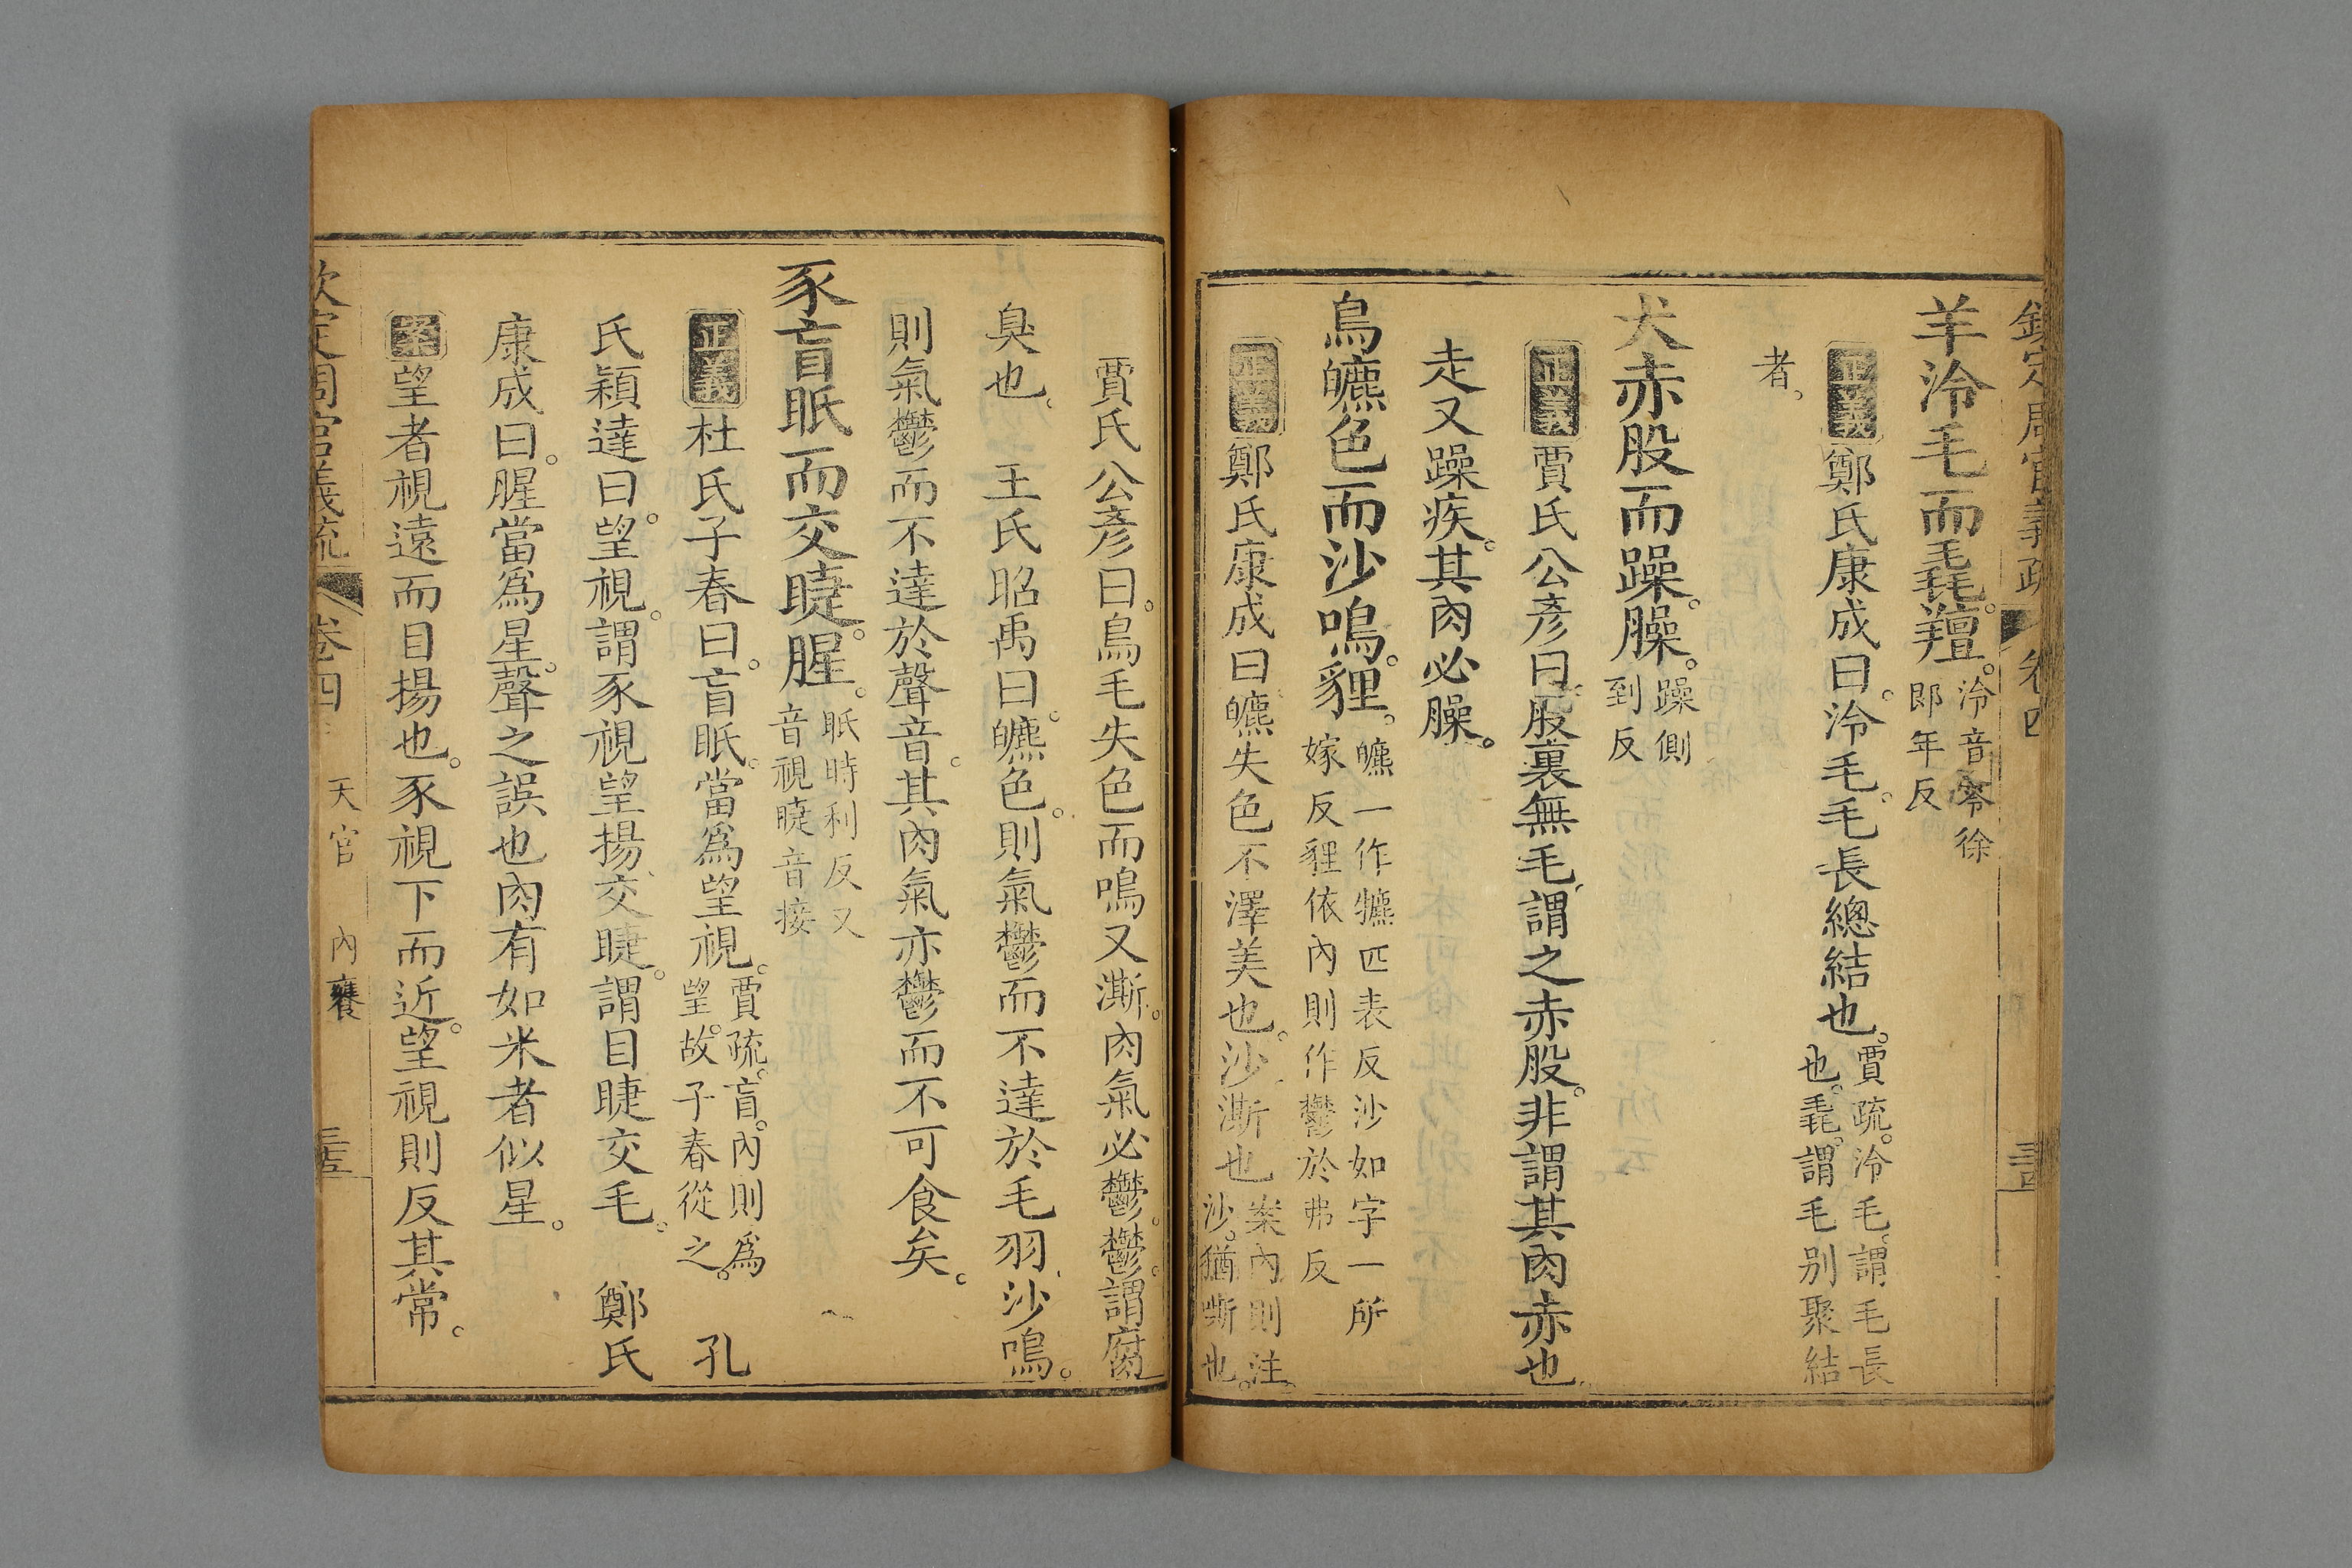 欽定周官義疏 卷四
羊泠毛而毳羶。泠音零徐郎年反
正義鄭氏康成曰。泠毛。毛長總結也。賈疏。泠毛。謂毛長也。毳。謂毛别聚結
者。
犬赤股而躁。臊。躁側到反
正義賈氏公彥曰股裏無毛。謂之赤股。非謂其肉赤也
走又躁疾。其肉必臊。
鳥皫色而沙鳴。貍。皫一作犥匹表反沙如字一所嫁反貍依內則作鬱於弗反
正義鄭氏康成曰皫失色不澤美也。沙澌也案內則注。沙。猶嘶也。
賈氏公彥曰。鳥毛失色而鳴又澌。肉氣必鬱。鬱。謂腐
臭也。 王氏昭禹曰。皫色。則氣鬱而不達於毛羽、沙鳴。
則氣鬱而不達於聲音。其肉氣亦鬱而不可食矣。
豕盲眡而交睫。腥。眡時利反又音視睫音接
正義杜氏子春曰。盲眡。當爲望視。賈疏。盲。內則爲望。故子春從之。 孔
氏穎達曰。望視。謂豕視望揚、交睫。謂目睫交毛。 鄭氏
康成曰。腥當爲星。聲之誤也肉有如米者似星。
案望者視遠而目揚也。豕視下而近。望視則反其常。
欽定周官義疏 卷四 天官 內饔